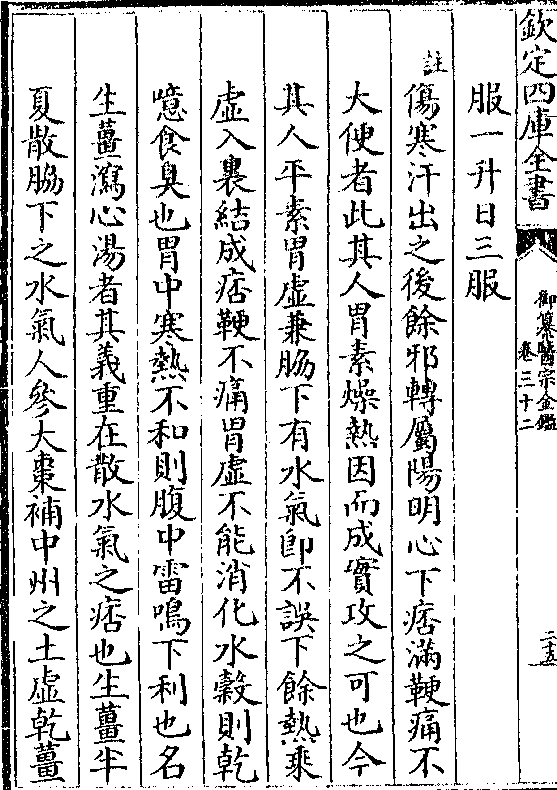 欽定四庫全書
御纂醫宗金鑑
卷三十二
二十五
服一升日三服
註
傷寒汗出之後餘邪轉屬陽明心下痞滿鞕痛不
大便者此其人胃素燥熱因而成實攻之可也今
其人平素胃虛兼脇下有水氣即不誤下餘熱乘
虛入裏結成痞鞕不痛胃虛不能消化水穀則乾
噫食臭也胃中寒熱不和則腹中雷鳴下利也名
生薑瀉心湯者其義重在散水氣之痞也生薑半
夏散脇下之水氣人參大棗補中州之土虛乾薑